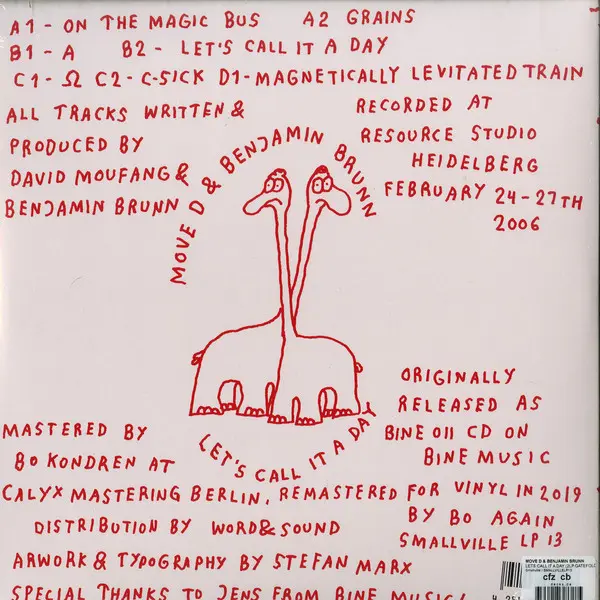 A1 - ON THE MAGIC BUS A2 GRAINS
B1 - A B2 - LET'S CALL IT A DAY
C1 - Ω C2 - C-SICK D1 - MAGNETICALLY LEVITATED TRAIN
ALL TRACKS WRITTEN &
PRODUCED BY
DAVID MOUFANG &
BENJAMIN BRUNN
RECORDED AT
RESOURCE STUDIO
HEIDELBERG
FEBRUARY 24-27TH
2006
MOVE D & BENJAMIN BRUNN
LET'S CALL IT A DAY
ORIGINALLY
RELEASED AS
BINE 011 CD ON
BINE MUSIC
MASTERED BY
BO KONDREN AT
CALYX MASTERING BERLIN, REMASTERED FOR VINYL IN 2019
BY BO AGAIN
DISTRIBUTION BY WORD & SOUND
SMALLVILLE LP 13
ARWORK & TYPOGRAPHY BY STEFAN MARX
SPECIAL THANKS TO JENS FROM BINE MUSIC!
MOVE D & BENJAMIN BRUNN
LETS CALL IT A DAY (2LP,GATEFOLD
cfz cb